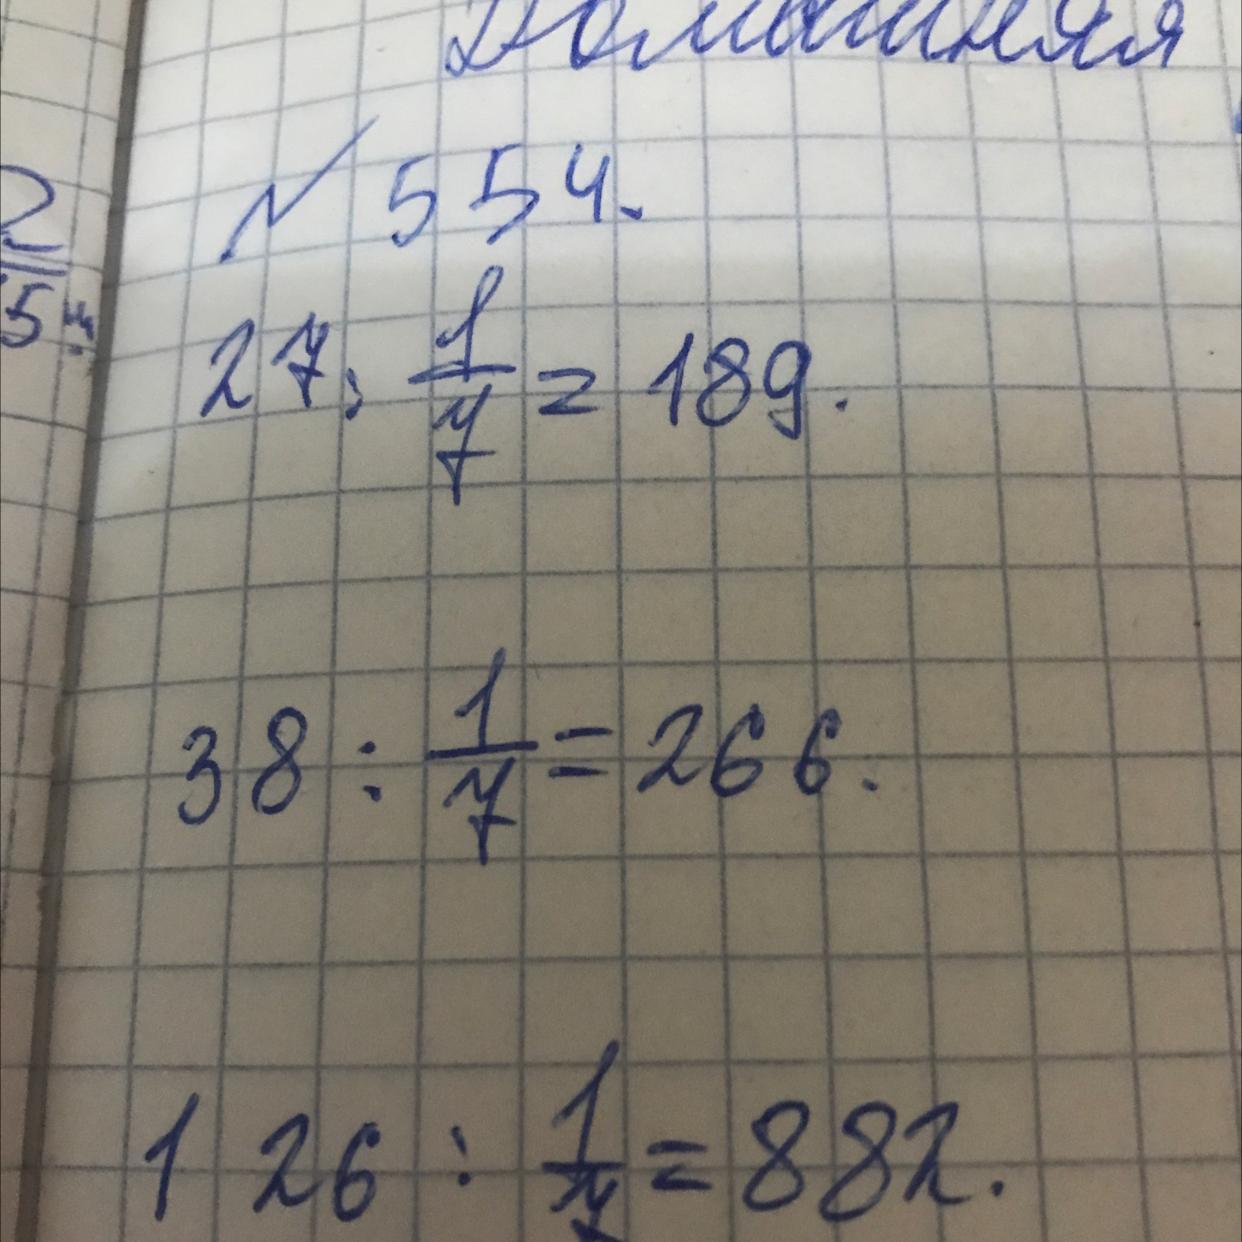 Домашняя
№ 554.
27 : 1/7 = 189.
38 : 1/7 = 266.
126 : 1/7 = 882.
2
5